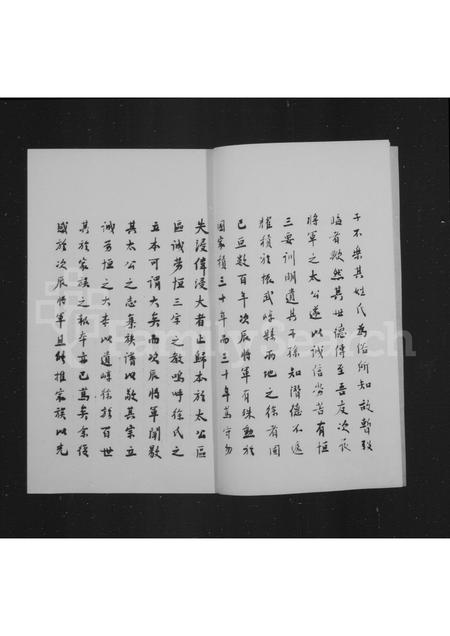 子不樂其姓氏為俗所知故暫毀
臨者歟然其世德傳至吾友次辰
將軍之太公遂以誠信勞苦有恒
三要訓明遺其子孫知潛德不返
耀積於振武嶂縣兩地之徐者固
已豆數百年次辰將軍有殊勳於
國家積三十年而三十年篤守勿
失浸偉浸大者止歸本於太公區
區誠勞恒三字之教嗚呼徐氏之
立本可謂大矣而次辰將軍闡敭
其太公之志集族譜以敬其宗立
誠勞恒之大本以遺嶂徐於百世
其於家族之報本亦已篤矣余復
感於次辰將軍且能推家族以先
FamilySearch